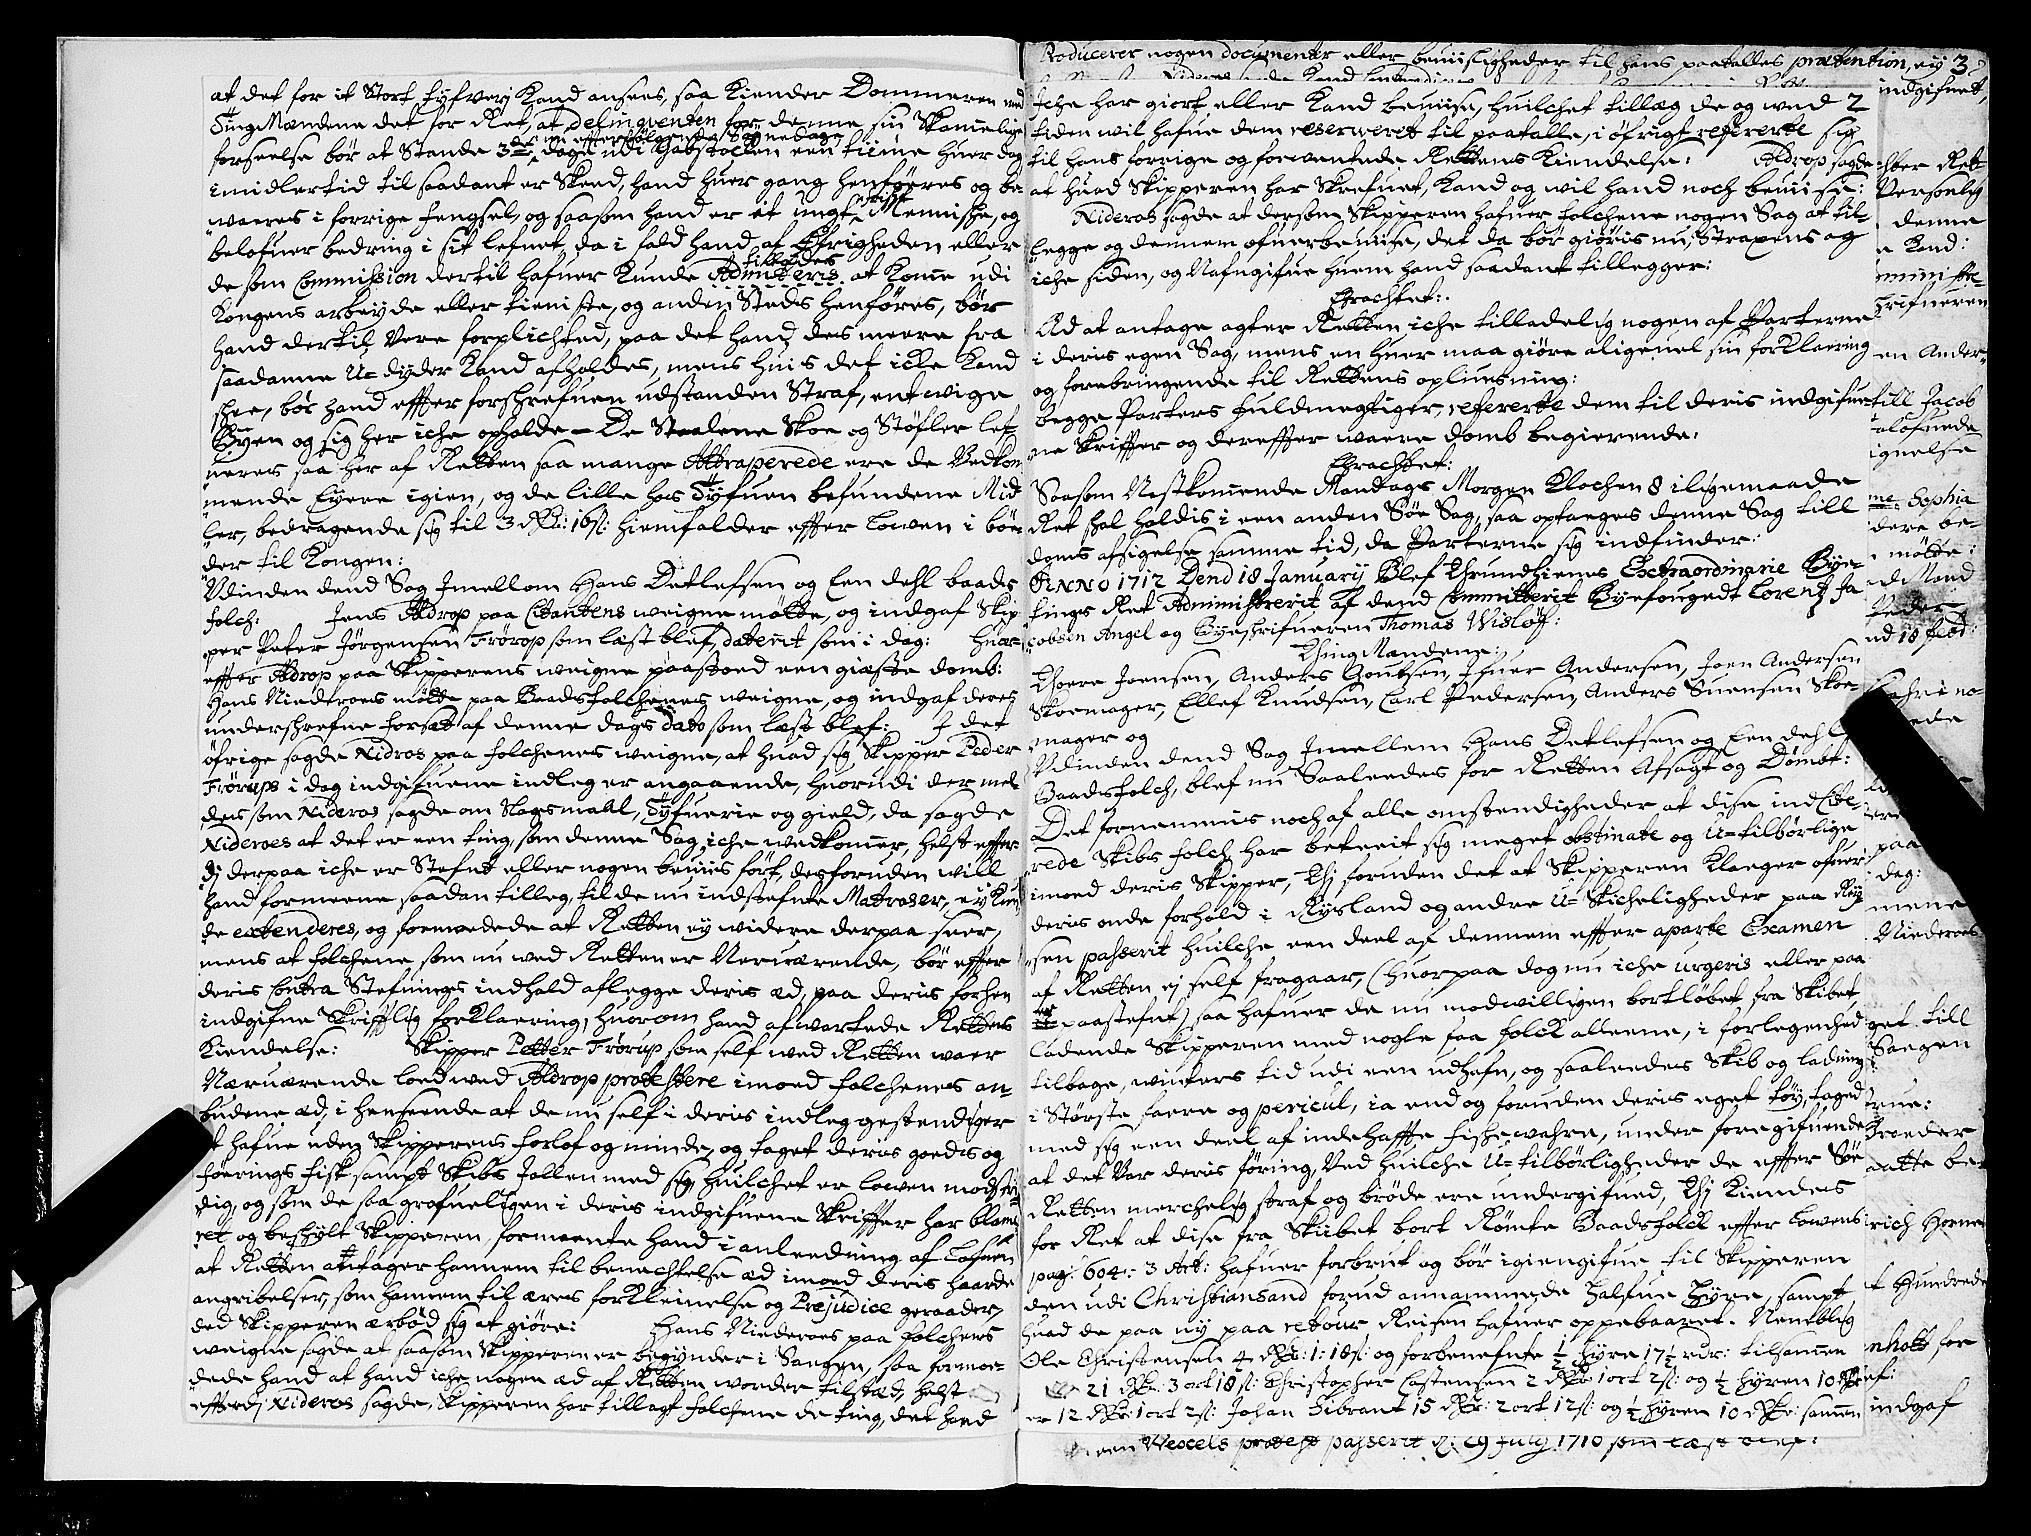 at det for it Stort tyfverj Kand ansees, saa Kiender Dommeren med
TingMændene det for Ret, at delinqventen for denne sin Skammelige
forseelse bør at Stande 3de efterfølgende Søgnedage udi Gabstocken een tiime huer dag
imidlertid til saadant er Skeed, hand huer gang henføeres og be-
waeres i forrige fengsel, og saasom hand er et ungt Mennische, og
belofuer bedring i sit lefnet, da i fald hand af Øfrigheden eller
de som Commission dertil hafuer Kunde Admitteris tillades at Komme udi
Kongens arbeyde eller tieniste, og anden Steds henføres, bør
hand dertil Vere forplichted, paa det hand des meere fra
saadanne U-dyder Kand afholdes, mens huis det icke Kand
schee, bør hand effter forschrefuen udstanden Straf, entwige
Byen og sig her iche opholde - De Staalene Skoe og Støfler lef-
ueres saa her af Retten saa mange Attraperede ere de Vedkom
mende Eyere igien, og de lille hos Tyfuen befundene Mid
ler, bedragende sig til 3 Rdr: 16s: hiemfalder effter Lowen i bøe
der til Kongen:
Udinden dend Sag Imellom Hans Detlefsen og Een dehl baads
folch: Jens Aldrop paa Citantens weigne mötte, og indgaf Skip
per Peter Jørgensen Frörop som læst blef, daterit som i dag: Huor-
effter Aldrop paa Skipperens weigne paastoed een gieste domb:
Hans Niederoes mötte paa Baadsfolchenes weigne, og indgaf deres
underschrefne forsæt af denne dags dato som læst blef: I det
öfrige sagde Nidros paa folchenes weigne, at huad sig Skipper Peder
Frörups i dag indgifuene indleg er angaaende, huorudi der mel
des som Nideros sagde om Slagsmahl, Tyfuerie og gield, da sagde
Nideroes at det er een ting, som denne Sag iche wedkomer, helst effter
dj derpaa iche er Stefnt eller nogen beuiis fört, desforuden will
hand formeene saadan tilleg, til de nu indstefnte Mattroser, ey Kun
de extenderes, og formodede at Retten ey widere derpaa seer,
mens at folchene som nu wed Retten er Neruærende, bør effter
deris Contra Stefnings indhold aflegge deris æd, paa deris forhen
indgifne Skrifftlig forklaering, huorom hand afwartede Rettens
Kiendelse: Skipper Petter Frörup som self wed Retten waer
Næruærende loed wed Aldrop protestere imoed folchenes an-
budene æd, i henseende at de nu self i deris indleg gestendiger
at hafue uden Skipperens forlof og minde, og taget deris goeds og
föerings fisk sampt Skibs Jollen med sig huilchet er lowen modstri-
dig, og som de saa grofueligen i deris indgifuene Skriffter har blame
ret og beskylt Skipperen, formeente hand i anleedning af Lofuen
at Retten antager hannem til benechtelse æd imoed deris haarde
angribelser, som hannem til æres forkleinelse og Præjudice geraader,
ded Skipperen ærböd sig at giöre: Hans Niederoes paa folchens
weigne sagde at saasom Skipperen er begynder i Saegen, saa formoe-
dede hand at hand iche nogen æd af Retten worder tilsted, helst
effterdj Nideros sagde, Skipperen har tillagt folchene de ting, det hand
Producerer nogen documenter eller beuiisligheder til hans paatalles prætention, ey 3
Iche har giort eller Kand beuiise, huilchet tillæg de og wed 2
tiden wil hafue dem reserweret til paatalle, i öfrigt refererte sig
til hans forrige og forwentede Rettens Kiendelse: Aldrop sagde
at huad Skipperen har Skrefuet, Kand og wil hand noch beuiise:
Nideros sagde at dersom Skipperen hafuer folchene nogen Sag at til-
legge og dennem ofuerbeuiise, det da bør giöris nu, Straxens og
iche siden, og Nafngifue huem hand saadant tillegger:
Eragtet:
Æd at antage agter Retten iche tilladelig nogen af Parterne
i deris egen Sag, mens en huer maa giöre aligeuel sin forklaering
og forebringende til Rettens opliusning:
Begge Parters fuldmegtiger, refererte dem til deris indgifue-
ne Skriffter og dereffter waere domb begierende:
Eragtet:
Saasom Nestkommende Mandags Morgen Klochen 8 iligemaade
Ret schal holdis i een anden Söe Sag, saa optaeges denne Sag till
doms afsigelse samme tid, da Parterne sig indfinder:
ANNO 1712 Dend 18 January Blef Thrundhiems Extraordinarie Bye-
tings Ret Administrerit af dend Committerit Byefougedt Lorentz Ja
cobsen Angel og Byeschrifueren Thomas Wislöf:
Thing Mændene:
Thoere Joensen, Anders Goubsen, Ifuer Andersen, Joen Andersen
Skoemager, Ellef Knudsen, Carl Pedersen, Anders Suensen Skoe-
mager og
Udinden dend Sag Imellem Hans Detlefsen og Een dehl
Baadsfolch, blef nu Saaleedes for Retten Afsagt og Dömbt:
Det fornemmis noch af alle omstendigheder at dise ind Cite-
rede Skibs folch har beteeit sig meget obstinate og U-tilbörlige
imoed deris Skipper, Thj foruden det at Skipperen Klaeger ofuer
deris onde forhold i Rysland og andre U-Skicheligheder paa Rey
sen passerit huilche een deel af dennem effter aparte Examen
af Retten ej self fragaar, (huorpaa dog nu iche urgeris eller paa
er paastefnt) saa hafuer de nu modwilligen bortlöbet fra Skibet
Ladende Skipperen med nogle faa folck alleene, i forlegenhed
tilbage, winters tid udi een udhafn, og saaleedes Skib og ladning
i Störste faere og pericul, ia end og foruden deris eget töy, taged
med sig een deel af indehaffte fischewahre, under foregifuende
at det Var deris föring, Ved huilche U-tilbörligheder de effter Söe
Retten merchelig straf og bröde ere undergifued, Thj Kiendes
for Ret at dise fra Skiibet bort Römte Baadsfolck effter Lowens
pag: 604: 3 Art: hafuer forbrut og bør igiengifue til Skipperen
den udi Christiansand forud annammede Halfue Hyre, sampt
huad de paa ny paa retour Reisen hafuer oppebaaret. Nemblig
Ole Christensen 4 Rdr: 1: 18s: og forbenefnte ½ Hyre 17½ rdr: tilsammen
21 Rdr: 3 ort 18s: Christopher Carstensen 2 Rdr 1 ort 2s: og ½ hyren 10 Rdr
er 12 Rdr: 1 ort 2s: Johan Sibrant 15 Rdr: 2 ort 12s: og ½ hyren 10 Rdr: sammen
een Wexels protest passerit d: 29 July 1710 som læst blef: